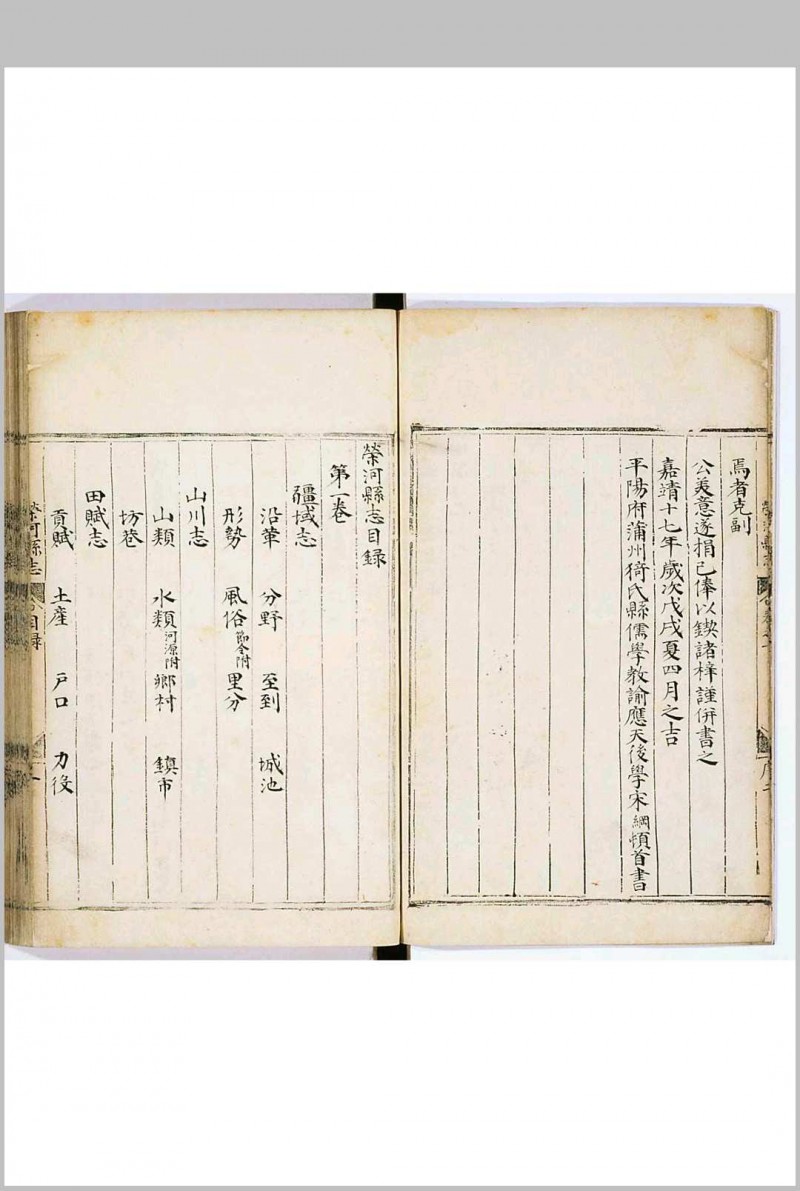 焉者克副
公美意遂捐己俸以鍥諸梓謹併書之
嘉靖十七年歲次戊戌夏四月之吉
平陽府蒲州猗氏縣儒學教諭應天後學宋綱頓首書
榮河縣志目錄
第一卷
疆域志
沿革 分野 至到 城池
形勢 風俗節令附 里分
山川志
山類 水類河源附 鄉村 鎮市
坊巷
田賦志
貢賦 土產 戶口 力役
榮河縣志 目錄